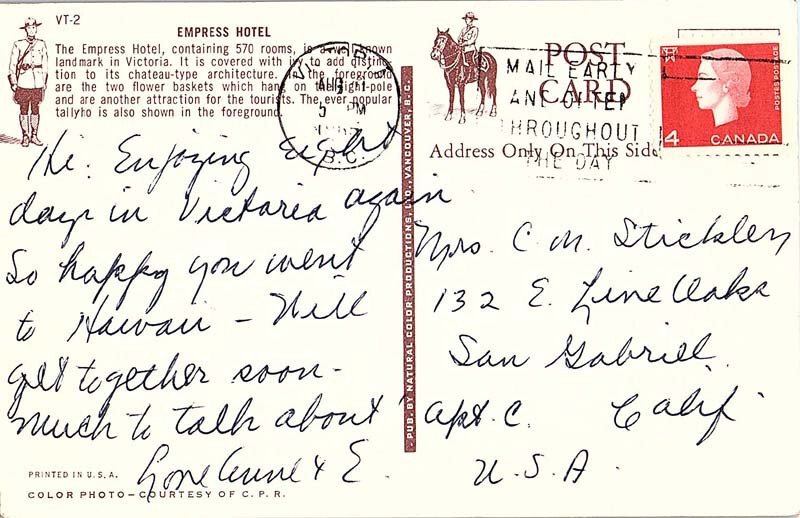 VT-2
EMPRESS HOTEL
The Empress Hotel, containing 570 rooms, is a well known
landmark in Victoria. It is covered with ivy to add distinc-
tion to its chateau-type architecture. In the foreground
are the two flower baskets which hang on the light-pole
and are another attraction for the tourists. The ever popular
tallyho is also shown in the foreground.
Hi: Enjoying eight
days in Victoria again
So happy you went
to Hawaii - Will
get together soon -
much to talk about
Love Anne & E.
PRINTED IN U.S.A.
COLOR PHOTO - COURTESY OF C.P.R.
PUB. BY NATURAL COLOR PRODUCTIONS, LTD., VANCOUVER, B.C.
AUG
5 PM
B.C.
POST
CARD
Address Only On This Side
MAIL EARLY
AND OFTEN
THROUGHOUT
THE DAY
POSTES POSTAGE
4 CANADA
Mrs. C. M. Stickley
132 E. Live Oaks
San Gabriel
Apt. C. Calif.
U.S.A.